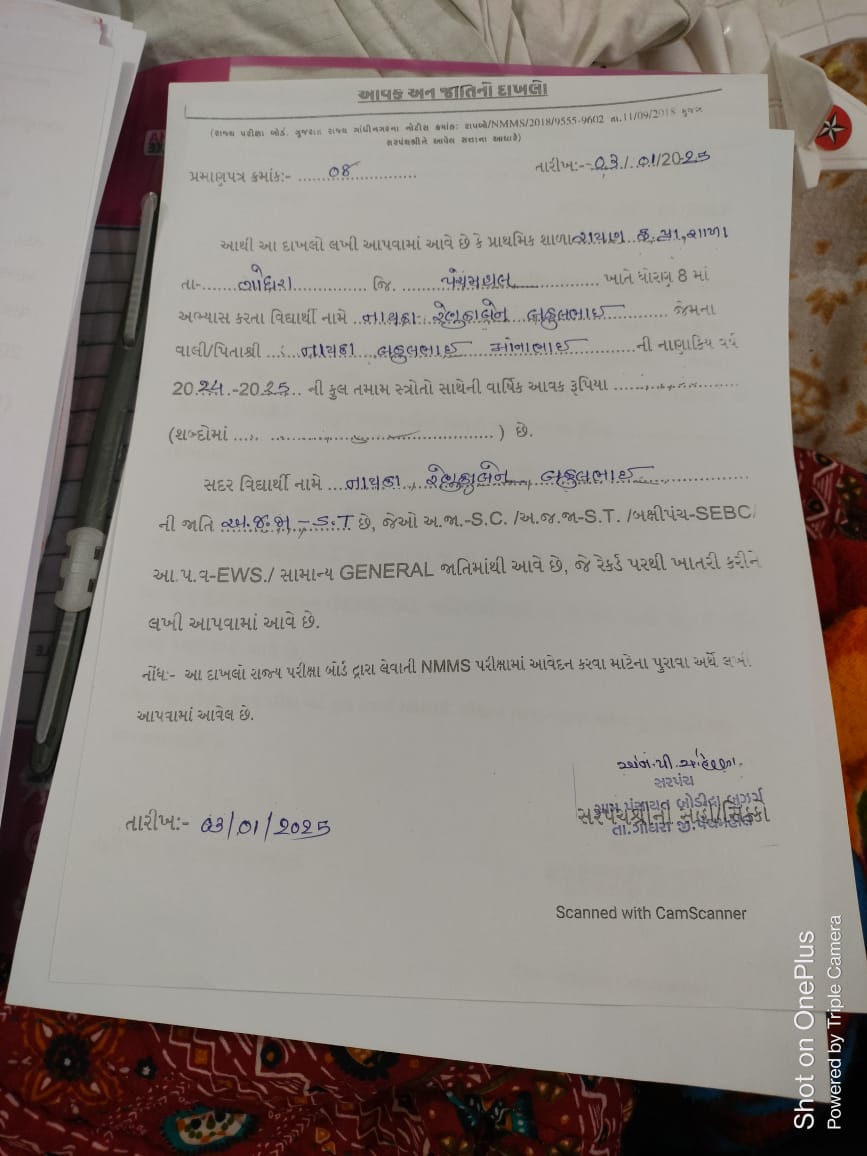 આવક અન જાતિનો દાખલો
(રાજ્ય પરીક્ષા બોર્ડ, ગુજરાત રાજ્ય ગાંધીનગરના નોટીસ ક્રમાંક: રાપબો/NMMS/2018/9555-9602 તા.11/09/2018 મુજબ
સરપંચશ્રીને આપેલ સત્તાના આધારે)
પ્રમાણપત્ર ક્રમાંક:- 08
તારીખ:- 03/01/2025
આથી આ દાખલો લખી આપવામાં આવે છે કે પ્રાથમિક શાળા
તા- ગોધરા જિ. પંચમહાલ ખાતે ધોરણ 8 માં
અભ્યાસ કરતા વિદ્યાર્થી નામે નાયકા રેણુકાબેન બકુલભાઈ જેમના
વાલી/પિતાશ્રી : નાયકા બકુલભાઈ મોનાભાઈ ની નાણાકિય વર્ષ
2024-2025 ની કુલ તમામ સ્ત્રોતો સાથેની વાર્ષિક આવક રૂપિયા
(શબ્દોમાં ) છે.
સદર વિદ્યાર્થી નામે નાયકા રેણુકાબેન બકુલભાઈ
ની જાતિ અ.જ.જા -S.T છે, જેઓ અ.જા.-S.C. /અ.જ.જા-S.T. /બક્ષીપંચ-SEBC/
આ.પ.વ-EWS./ સામાન્ય GENERAL જાતિમાંથી આવે છે, જે રેકર્ડ પરથી ખાતરી કરીને
લખી આપવામાં આવે છે.
નોંધ:- આ દાખલો રાજ્ય પરીક્ષા બોર્ડ દ્રારા લેવાતી NMMS પરીક્ષામાં આવેદન કરવા માટેના પુરાવા અર્થે લખી
આપવામાં આવેલ છે.
સરપંચ
ગ્રામ પંચાયત બોડીદ્રા બુઝર્ગ
તા.ગોધરા જી.પંચમહાલ
સરપંચશ્રીની સહી/સિક્કો
તારીખ:- 03/01/2025
Scanned with CamScanner
Shot on OnePlus
Powered by Triple Camera